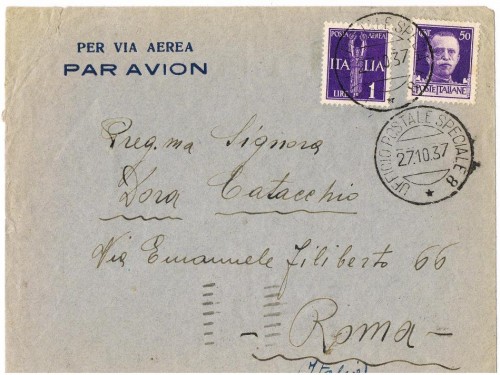 PER VIA AEREA
PAR AVION
POSTA AEREA
ITALIA
LIRE 1
50
POSTE ITALIANE
UFFICIO POSTALE SPECIALE 8
27.10.37
Preg.ma Signora
Dora Catacchio
Via Emanuele Filiberto 66
- Roma -
(Italia)